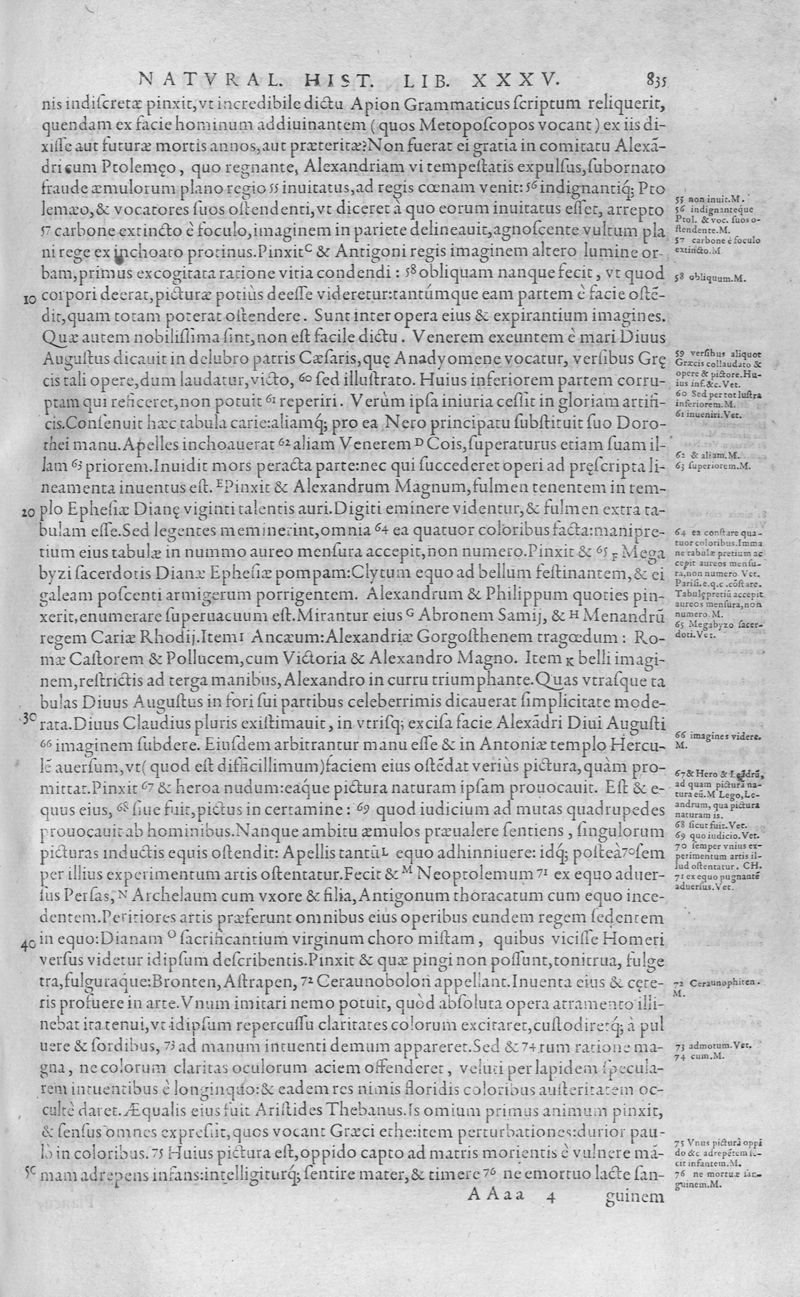 NATVRAL. HIST. LIB. XXXV. 835
nis indiſcretæ pinxit,vt incredibile dictu Apion Grammaticus ſcriptum reliquerit,
quendam ex facie hominum addiuinantem (quos Metopoſcopos vocant) ex iis di-
xiſſe aut futuræ mortis annos,aut præteritæ?Non fuerat ei gratia in comitatu Alexã-
dri cum Ptolemęo, quo regnante, Alexandriam vi tempeſtatis expulſus,ſubornato
fraude æmulorum plano regio 55 inuitatus,ad regis cœnam venit: 56 indignantiq́; Pto
lemæo,& vocatores ſuos oſtendenti,vt diceret à quo eorum inuitatus eſſet, arrepto
57 carbone extincto è foculo,imaginem in pariete delineauit,agnoſcente vultum pla
ni rege ex inchoato protinus.Pinxit C & Antigoni regis imaginem altero lumine or-
bam,primus excogitata ratione vitia condendi : 58 obliquam nanque fecit , vt quod
10 corpori deerat,picturæ potiùs deeſſe videretur:tantúmque eam partem è facie oſtẽ-
dit,quam totam poterat oſtendere. Sunt inter opera eius & expirantium imagines.
Quæ autem nobiliſſima ſint,non eſt facile dictu. Venerem exeuntem è mari Diuus
Auguſtus dicauit in delubro patris Cæſaris,quę Anadyomene vocatur, verſibus Grę
cis tali opere,dum laudatur,victo, 60 ſed illuſtrato. Huius inferiorem partem corru-
ptam qui reficeret,non potuit 61 reperiri. Verùm ipſa iniuria ceſſit in gloriam artifi-
cis.Conſenuit hæc tabula carie:aliamq́; pro ea Nero principatu ſubſtituit ſuo Doro-
thei manu.Apelles inchoauerat 62 aliam Venerem D Cois,ſuperaturus etiam ſuam il-
lam 63 priorem.Inuidit mors peracta parte:nec qui ſuccederet operi ad pręſcripta li-
neamenta inuentus eſt. E Pinxit & Alexandrum Magnum,fulmen tenentem in tem-
20 plo Epheſiæ Dianę viginti talentis auri.Digiti eminere videntur,& fulmen extra ta-
bulam eſſe.Sed legentes meminerint,omnia 64 ea quatuor coloribus facta:manipre-
tium eius tabulæ in nummo aureo menſura accepit,non numero.Pinxit & 65 F Mega
byzi ſacerdotis Dianæ Epheſiæ pompam:Clytum equo ad bellum feſtinantem,& ei
galeam poſcenti armigerum porrigentem. Alexandrum & Philippum quoties pin-
xerit,enumerare ſuperuacuum eſt.Mirantur eius G Abronem Samij, & H Menandrũ
regem Cariæ Rhodij.Item I Ancæum:Alexandriæ Gorgoſthenem tragœdum : Ro-
mæ Caſtorem & Pollucem,cum Victoria & Alexandro Magno. Item K belli imagi-
nem,reſtrictis ad terga manibus,Alexandro in curru triumphante.Quas vtraſque ta
bulas Diuus Auguſtus in fori ſui partibus celeberrimis dicauerat ſimplicitate mode-
30 rata.Diuus Claudius pluris exiſtimauit, in vtriſq; exciſa facie Alexãdri Diui Auguſti
66 imaginem ſubdere. Eiuſdem arbitrantur manu eſſe & in Antoniæ templo Hercu-
lẽ auerſum,vt(quod eſt difficillimum)faciem eius oſtẽdat verius pictura,quàm pro-
mittat.Pinxit 67 & heroa nudum:eaque pictura naturam ipſam prouocauit. Eſt & e-
quus eius, 68 ſiue fuit,pictus in certamine : 69 quod iudicium ad mutas quadrupedes
prouocauit ab hominibus.Nanque ambitu æmulos præualere ſentiens , ſingulorum
picturas inductis equis oſtendit: Apellis tantũ L equo adhinniuere: idq́; poſteà 70 ſem
per illius experimentum artis oſtentatur.Fecit & M Neoptolemum 71 ex equo aduer-
ſus Perſas, N Archelaum cum vxore & filia,Antigonum thoracatum cum equo ince-
dentem.Peritiores artis præferunt omnibus eius operibus eundem regem ſedentem
40 in equo:Dianam O ſacrificantium virginum choro miſtam, quibus viciſſe Homeri
verſus videtur idipſum deſcribentis.Pinxit & quæ pingi non poſſunt,tonitrua, fulge
tra,fulguraque:Bronten,Aſtrapen, 72 Ceraunobolon appellant.Inuenta eius & cęte-
ris profuere in arte.Vnum imitari nemo potuit, quòd abſoluta opera atramento illi-
nebat ita tenui,vt idipſum repercuſſu claritates colorum excitaret,cuſtodiretq́; à pul
uere & ſordibus, 73 ad manum intuenti demum appareret.Sed & 74 tum ratione ma-
gna, ne colorum claritas oculorum aciem offenderet, veluti per lapidem ſpecula-
rem intuentibus è longinquo:& eadem res nimis floridis coloribus auſteritatem oc-
cultè daret.Æqualis eius fuit Ariſtides Thebanus.Is omium primus animum pinxit,
& ſenſus omnes expreſſit,quos vocant Græci ethe:item perturbationes:durior pau-
lò in coloribus. 75 Huius pictura eſt,oppido capto ad matris morientis è vulnere mã-
50 mam adrepens infans:intelligiturq́; ſentire mater,& timere 76 ne emortuo lacte ſan-
AAaa 4 guinem
55 non inuit.M.
56 indignanteque
Ptol. & voc. ſuos o-
ſtendente.M.
57 carbone è foculo
extincto.M
58 obliquum.M.
59 verſibus aliquot
Græcis collaudato &
opere & pictore.Hu-
ius inf.&c.Vet.
60 Sed per tot luſtra
inferiorem.M.
61 inueniri.Vet.
62 & aliam.M.
63 ſuperiorem.M.
64 ea conſtare qua-
tuor coloribus.Imma
ne tabulæ pretium ac
cepit aureos menſu-
ra,non numero Vet.
Pariſ.e.q.c.cõſtare.
Tabulę pretiũ accepit
aureos menſura,non
numero.M.
65 Megabyzo ſacer-
doti.Vet.
66 imagines videre.
M.
67 & Hero &
ad quam pictura na-
tura eũ.M Lego,Le-
andrum, qua pictura
naturam is.
68 ſicut fuit.Vet.
69 quo iudicio.Vet.
70 ſemper vnius ex-
perimentum artis il-
lud oſtentatur. CH.
71 ex equo pugnantẽ
aduerſus.Vet.
72 Ceraunophiten.
M.
73 admotum.Vet.
74 cum.M.
75 Vnus picturâ oppi
do &c adrepẽtem ie-
cit infantem.M.
76 ne mortuæ lac-
guinem.M.